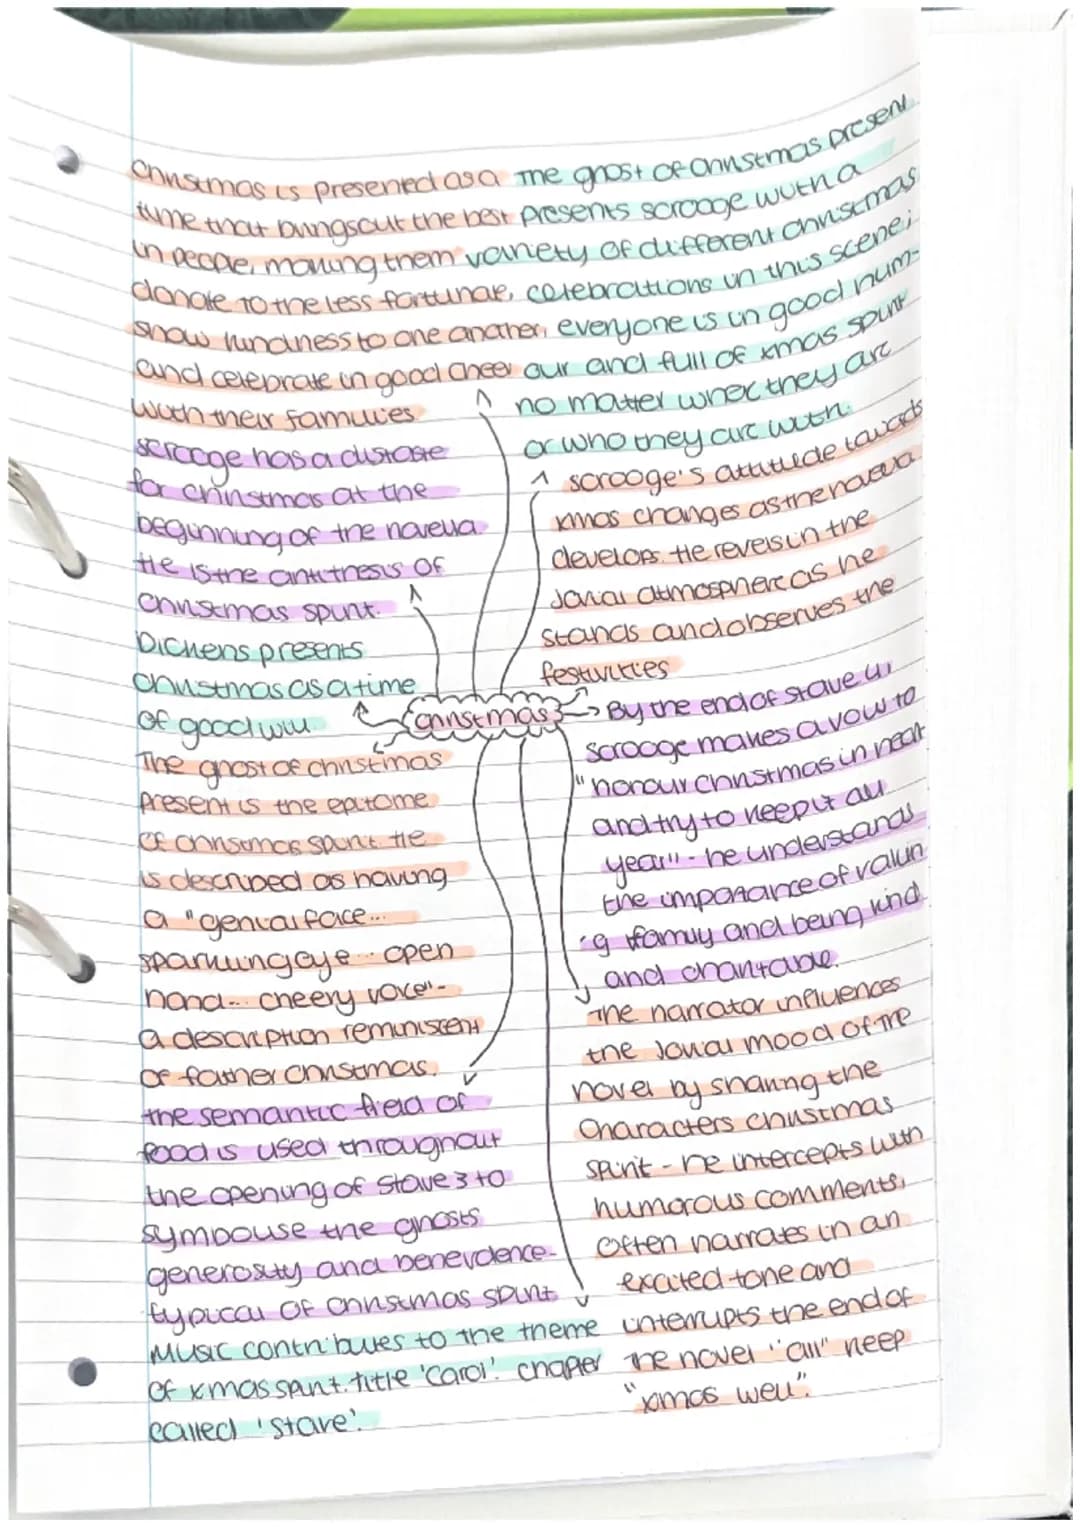 Christmas is presented as a
time that brings out the best
in people, making them
donate to the less fortunate,
show kindness to one another,
and celebrate in good cheer
with their families
The ghost of Christmas present
presents scrooge with a
variety of different christmas
celebrations in this scene;
everyone is in good hum-
our and full of xmas spirit
no matter where they are
or who they are with.
scrooge has a distaste
for christmas at the
beginning of the novella
He is the antithesis of
christmas spirit.
scrooge's attitude towards
xmas changes as the novella
develops. He revels in the
Jovial atmosphere as he
stands and observes the
festivities
Dickens presents
christmas as a time
of good will
christmas
The ghost of christmas
present is the epitome
of christmas spirit. He
is described as having
a "genial face...
sparkling eye... open
hand... cheery voice" -
a description reminiscent
of father christmas.
By the end of stave iii
scrooge makes a vow to
"honour christmas in heart
and try to keep it all
year" - he understands
the importance of valuin
-g family and being kind
and charitable.
the semantic field of
food is used throughout
the opening of stave 3 to
symbolise the ghosts
generosity and benevolence-
typical of christmas spirit
The narrator influences
the Jovial mood of the
novel by sharing the
characters christmas
spirit - he intercepts with
humorous comments,
often narrates in an
excited tone and
interrupts the end of
the novel 'all' keep
"xmas well".
Music contributes to the theme
of xmas spirit. title 'Carol'. chapter
called 'stave'.